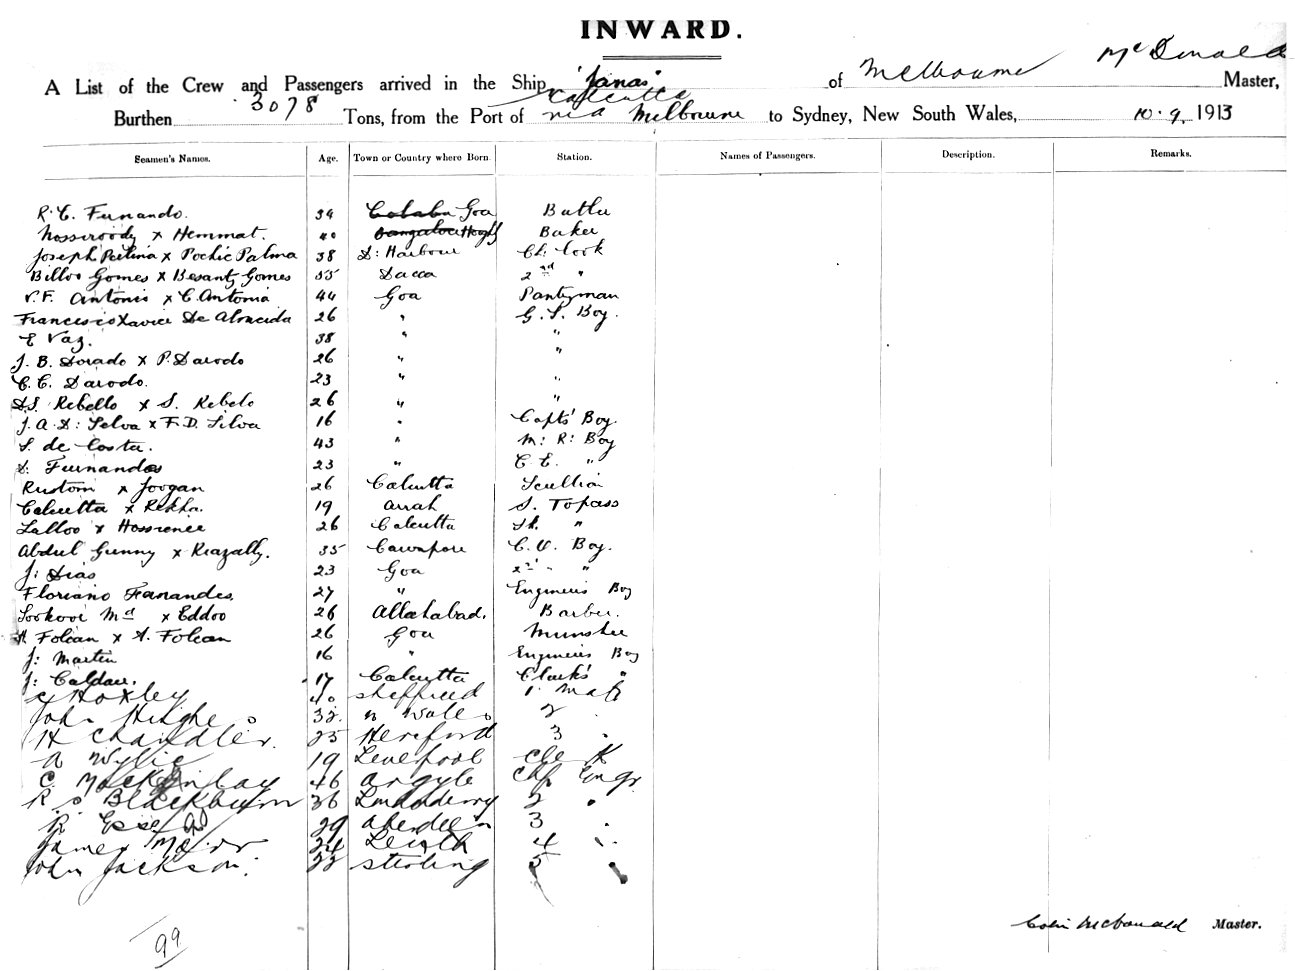 INWARD.
A List of the Crew and Passengers arrived in the Ship "Janas" of Melbourne McDonald Master,
Calcutta
Burthen 3078 Tons, from the Port of via Melbourne to Sydney, New South Wales, 10.9. 1913
Seamen's Names. Age. Town or Country where Born. Station. Names of Passengers. Description. Remarks.
R. C. Fernando. 34 Goa Butler
x Hemmat. 40 Baker
Joseph x Pochie Palma 38 D: Harbour Ch: Cook
Billoo Gomes x Besanty Gomes 55 Dacca 2nd "
V.F. Antonio x C. Antonia 44 Goa Pantryman
Francisco Xavier De Almeida 26 " G. S. Boy.
E Vaz. 38 " "
J. B. Dorado x P. Darodo 26 " "
C. C. Darodo. 23 " "
D.S. Rebello x S. Rebelo 26 " "
J. A. D: Selva x F. D. Silva 16 " Capts' Boy.
S. de Costa. 43 " M: R: Boy
S. Fernandes 23 " C. E. "
Rustom x Joogan 26 Calcutta Scullion
Calcutta x Rekha. 19 Arrah S. Topass
Lalloo x 26 Calcutta "
Abdul Gunny x Riazally. 35 Cawnpore C. O. Boy.
J: Dias 23 Goa 2nd " "
Floriano Fernandes 27 " Engineers Boy
Md x Eddoo 26 Allahabad. Barber.
Folean x A. Folean 26 Goa Munshee
J: Martin 16 " Engineers Boy
J: Caldar. 17 Calcutta Clerk's "
C Hoxley 40 Sheffield 1 Mate
John Hughes 32. N Wales 2 "
H Chandler. 25 Hereford 3 "
A Wylie 19 Liverpool Clerk
C. Mackinlay 46 Argyle Chf Engr.
R S Blackburn 36 Londonderry 2 "
R 29 Aberdeen 3 "
James Moir 24 Leith 4 "
John Jackson. 22 Stirling 5 "
99
Colin McDonald Master.